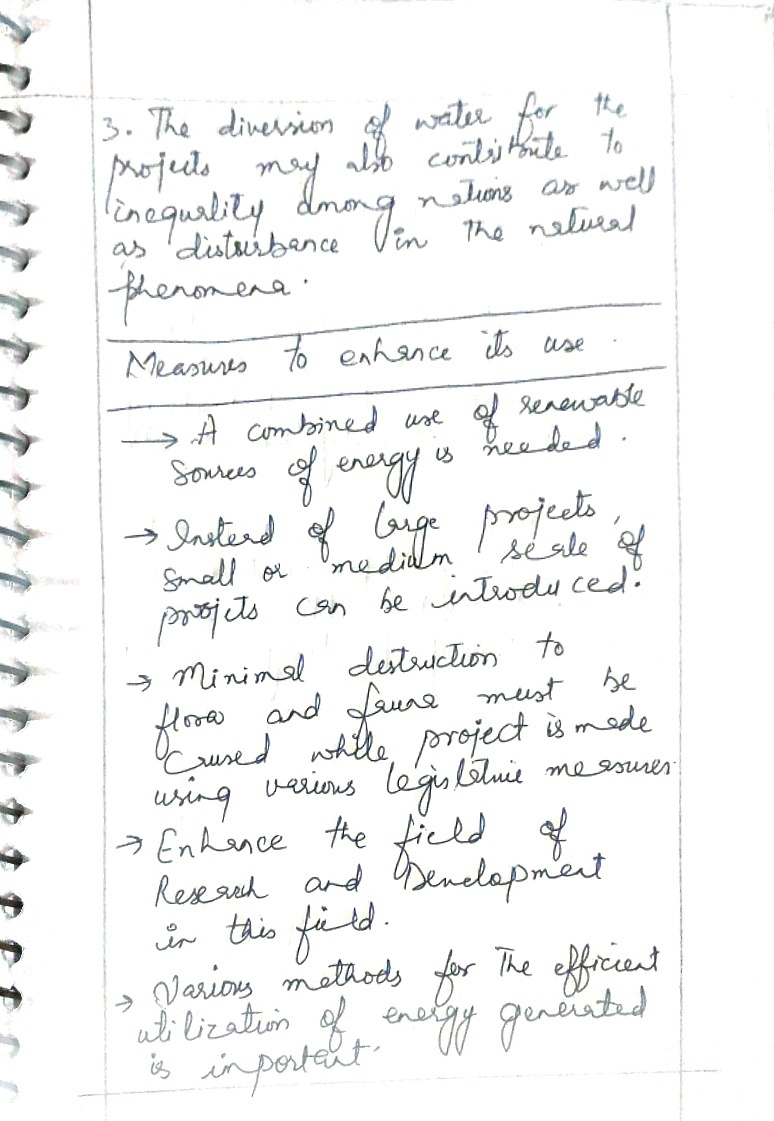 3. The diversion of water for the
projects may also contribute to
inequality among nations as well
as disturbance in the natural
phenomena.
Measures to enhance its use.
→ A combined use of renewable
sources of energy is needed.
→ Instead of large projects,
small or medium scale of
projcts can be introduced.
→ Minimal destruction to
flora and fauna must be
caused while project is made
using various legislative measures
→ Enhance the field of
Research and Development
in this field.
→ Various methods for the efficient
utilization of energy generated
is important.